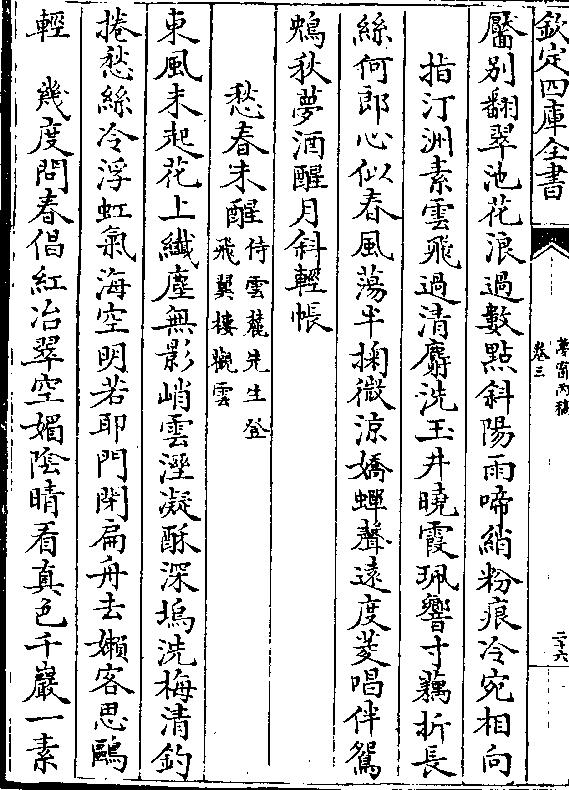 欽定四庫全書
夢窗丙稿
卷三
二十六
靨别翻翠池花浪過數點斜陽雨啼綃粉痕冷宛相向
指汀洲素雲飛過清麝洗玉井曉霞珮響寸藕折長
絲何郎心似春風蕩半掬微涼嬌蟬聲遠度菱唱伴鴛
鴆秋夢酒醒月斜輕帳
愁春未醒
侍雲麓先生登
飛翼樓觀雲
東風未起花上纎塵無影峭雲溼凝酥深塢洗梅清釣
捲愁絲冷浮虹氣海空明若耶門閉扁舟去嬾客思鷗
輕 幾度問春倡紅冶翠空媚陰晴看真色千巖一素